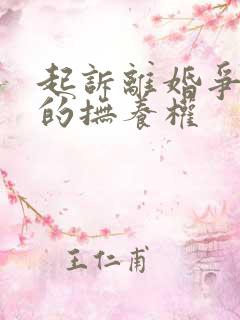 起訴離婚爭
的撫養權
王仁甫